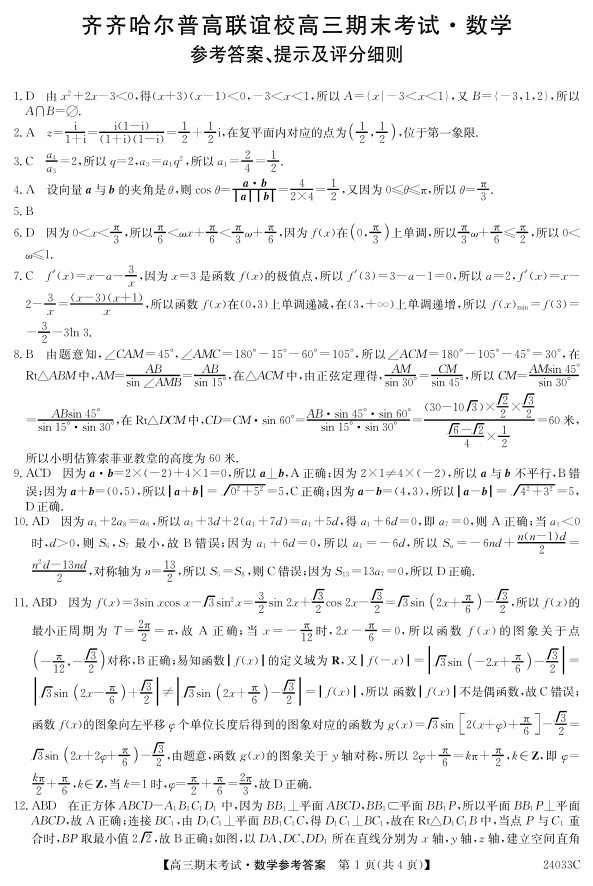 齐齐哈尔普高联谊校高三期末考试·数学
参考答案、提示及评分细则
1. D 由 x²+2x−3<0,得(x+3)(x−1)<0,−3<x<1,所以 A={x|−3<x<1},又 B={−3,1,2},所以
A∩B=∅.
2. A z=i/(1+i)=i(1−i)/((1+i)(1−i))=1/2+1/2 i,在复平面内对应的点为(1/2,1/2),位于第一象限.
3. C a₄/a₃=2,所以 q=2,a₃=a₁q²,所以 a₁=2/4=1/2.
4. A 设向量 a 与 b 的夹角是 θ,则 cos θ=a·b/(|a||b|)=4/(2×4)=1/2,又因为 0≤θ≤π,所以 θ=π/3.
5. B
6. D 因为 0<x<π/3,所以 π/6<ωx+π/6<π/3 ω+π/6,因为 f(x)在(0,π/3)上单调,所以 π/3 ω+π/6≤π/2,所以 0<
ω≤1.
7. C f′(x)=x−a−3/x,因为 x=3 是函数 f(x)的极值点,所以 f′(3)=3−a−1=0,所以 a=2,f′(x)=x−
2−3/x=(x−3)(x+1)/x,所以函数 f(x)在(0,3)上单调递减,在(3,+∞)上单调递增,所以 f(x)min=f(3)=
−3/2−3ln 3.
8. B 由题意知,∠CAM=45°,∠AMC=180°−15°−60°=105°,所以∠ACM=180°−105°−45°=30°,在
Rt△ABM 中,AM=AB/sin∠AMB=AB/sin 15°,在△ACM 中,由正弦定理得,AM/sin 30°=CM/sin 45°,所以 CM=AMsin 45°/sin 30°
=ABsin 45°/(sin 15°·sin 30°),在 Rt△DCM 中,CD=CM·sin 60°=AB·sin 45°·sin 60°/(sin 15°·sin 30°)=((30−10√3)×√2/2×√3/2)/((√6−√2)/4×1/2)=60 米,
所以小明估算索菲亚教堂的高度为 60 米.
9. ACD 因为 a·b=2×(−2)+4×1=0,所以 a⊥b,A 正确;因为 2×1≠4×(−2),所以 a 与 b 不平行,B 错
误;因为 a+b=(0,5),所以|a+b|=√(0²+5²)=5,C 正确;因为 a−b=(4,3),所以|a−b|=√(4²+3²)=5,
D 正确.
10. AD 因为 a₄+2a₈=a₆,所以 a₁+3d+2(a₁+7d)=a₁+5d,得 a₁+6d=0,即 a₇=0,则 A 正确;当 a₁<0
时,d>0,则 S₆,S₇ 最小,故 B 错误;因为 a₁+6d=0,所以 a₁=−6d,所以 Sₙ=−6nd+n(n−1)d/2=
(n²d−13nd)/2,对称轴为 n=13/2,所以 S₅=S₈,则 C 错误;因为 S₁₃=13a₇=0,所以 D 正确.
11. ABD 因为 f(x)=3sin xcos x−√3sin²x=3/2 sin 2x+√3/2 cos 2x−√3/2=√3sin(2x+π/6)−√3/2,所以 f(x)的
最小正周期为 T=2π/2=π,故 A 正确;当 x=−π/12 时,2x−π/6=0,所以函数 f(x)的图象关于点
(−π/12,−√3/2)对称,B 正确;易知函数|f(x)|的定义域为 R,又|f(−x)|=|√3sin(−2x+π/6)−√3/2|=
|√3sin(2x−π/6)+√3/2|≠|√3sin(2x+π/6)−√3/2|=|f(x)|,所以 函数|f(x)|不是偶函数,故 C 错误;
函数 f(x)的图象向左平移 φ 个单位长度后得到的图象对应的函数为 g(x)=√3sin[2(x+φ)+π/6]−√3/2=
√3sin(2x+2φ+π/6)−√3/2,由题意,函数 g(x)的图象关于 y 轴对称,所以 2φ+π/6=kπ+π/2,k∈Z,即 φ=
kπ/2+π/6,k∈Z,当 k=1 时,φ=π/2+π/6=2π/3,故 D 正确.
12. ABD 在正方体 ABCD−A₁B₁C₁D₁ 中,因为 BB₁⊥平面 ABCD,BB₁⊂平面 BB₁P,所以平面 BB₁P⊥平面
ABCD,故 A 正确;连接 BC₁,由 D₁C₁⊥平面 BB₁C₁C,得 D₁C₁⊥BC₁,故在 Rt△D₁C₁B 中,当点 P 与 C₁ 重
合时,BP 取最小值 2√2,故 B 正确;如图,以 DA,DC,DD₁ 所在直线分别为 x 轴,y 轴,z 轴,建立空间直角
【高三期末考试·数学参考答案 第 1 页(共 4 页)】 24033C